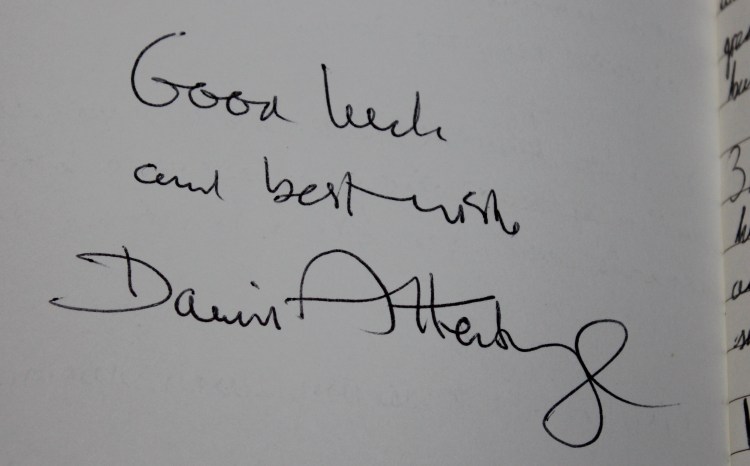 Good luck
and best wishes
David Attenborough